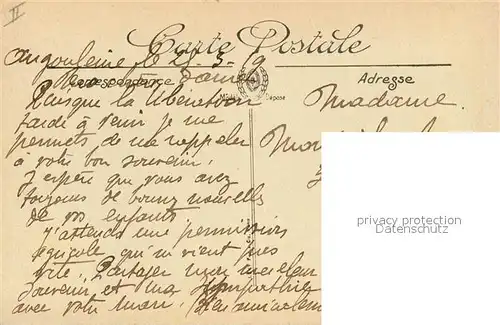 II
Carte Postale
Angoulême le 28-3-19
Correspondance
Adresse
Dame
Modèle Déposé
Madame
Puisque la libération
tarde à venir je me
permets de me rappeler
à votre bon souvenir.
J'espère que vous avez
toujours de bonnes nouvelles
de vos enfants.
J'attends une permission
qui ne vient pas
vite. Partagez mon meilleur
souvenir et ma sympathie
avec votre mari. Bien amicalement
privacy protection
Datenschutz